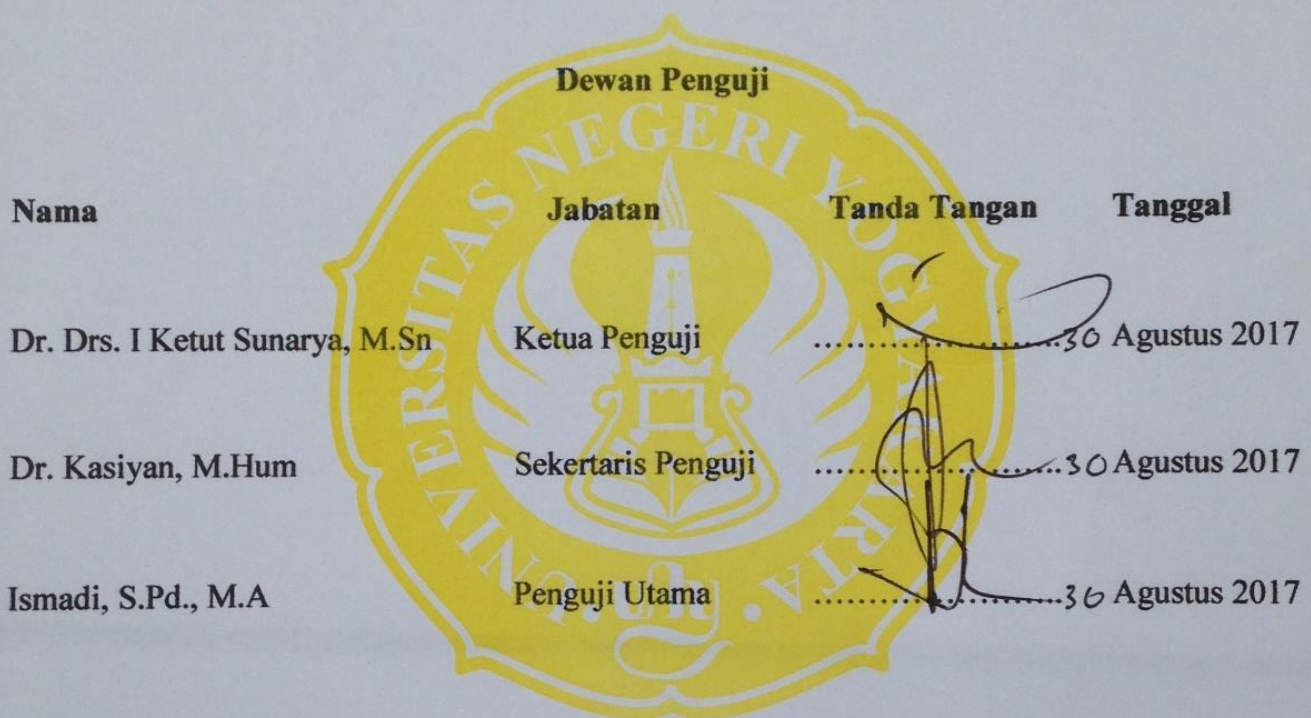 Dewan Penguji
UNIVERSITAS NEGERI YOGYAKARTA
Nama Jabatan Tanda Tangan Tanggal
Dr. Drs. I Ketut Sunarya, M.Sn Ketua Penguji ........................30 Agustus 2017
Dr. Kasiyan, M.Hum Sekertaris Penguji ........................30 Agustus 2017
Ismadi, S.Pd., M.A Penguji Utama ........................30 Agustus 2017